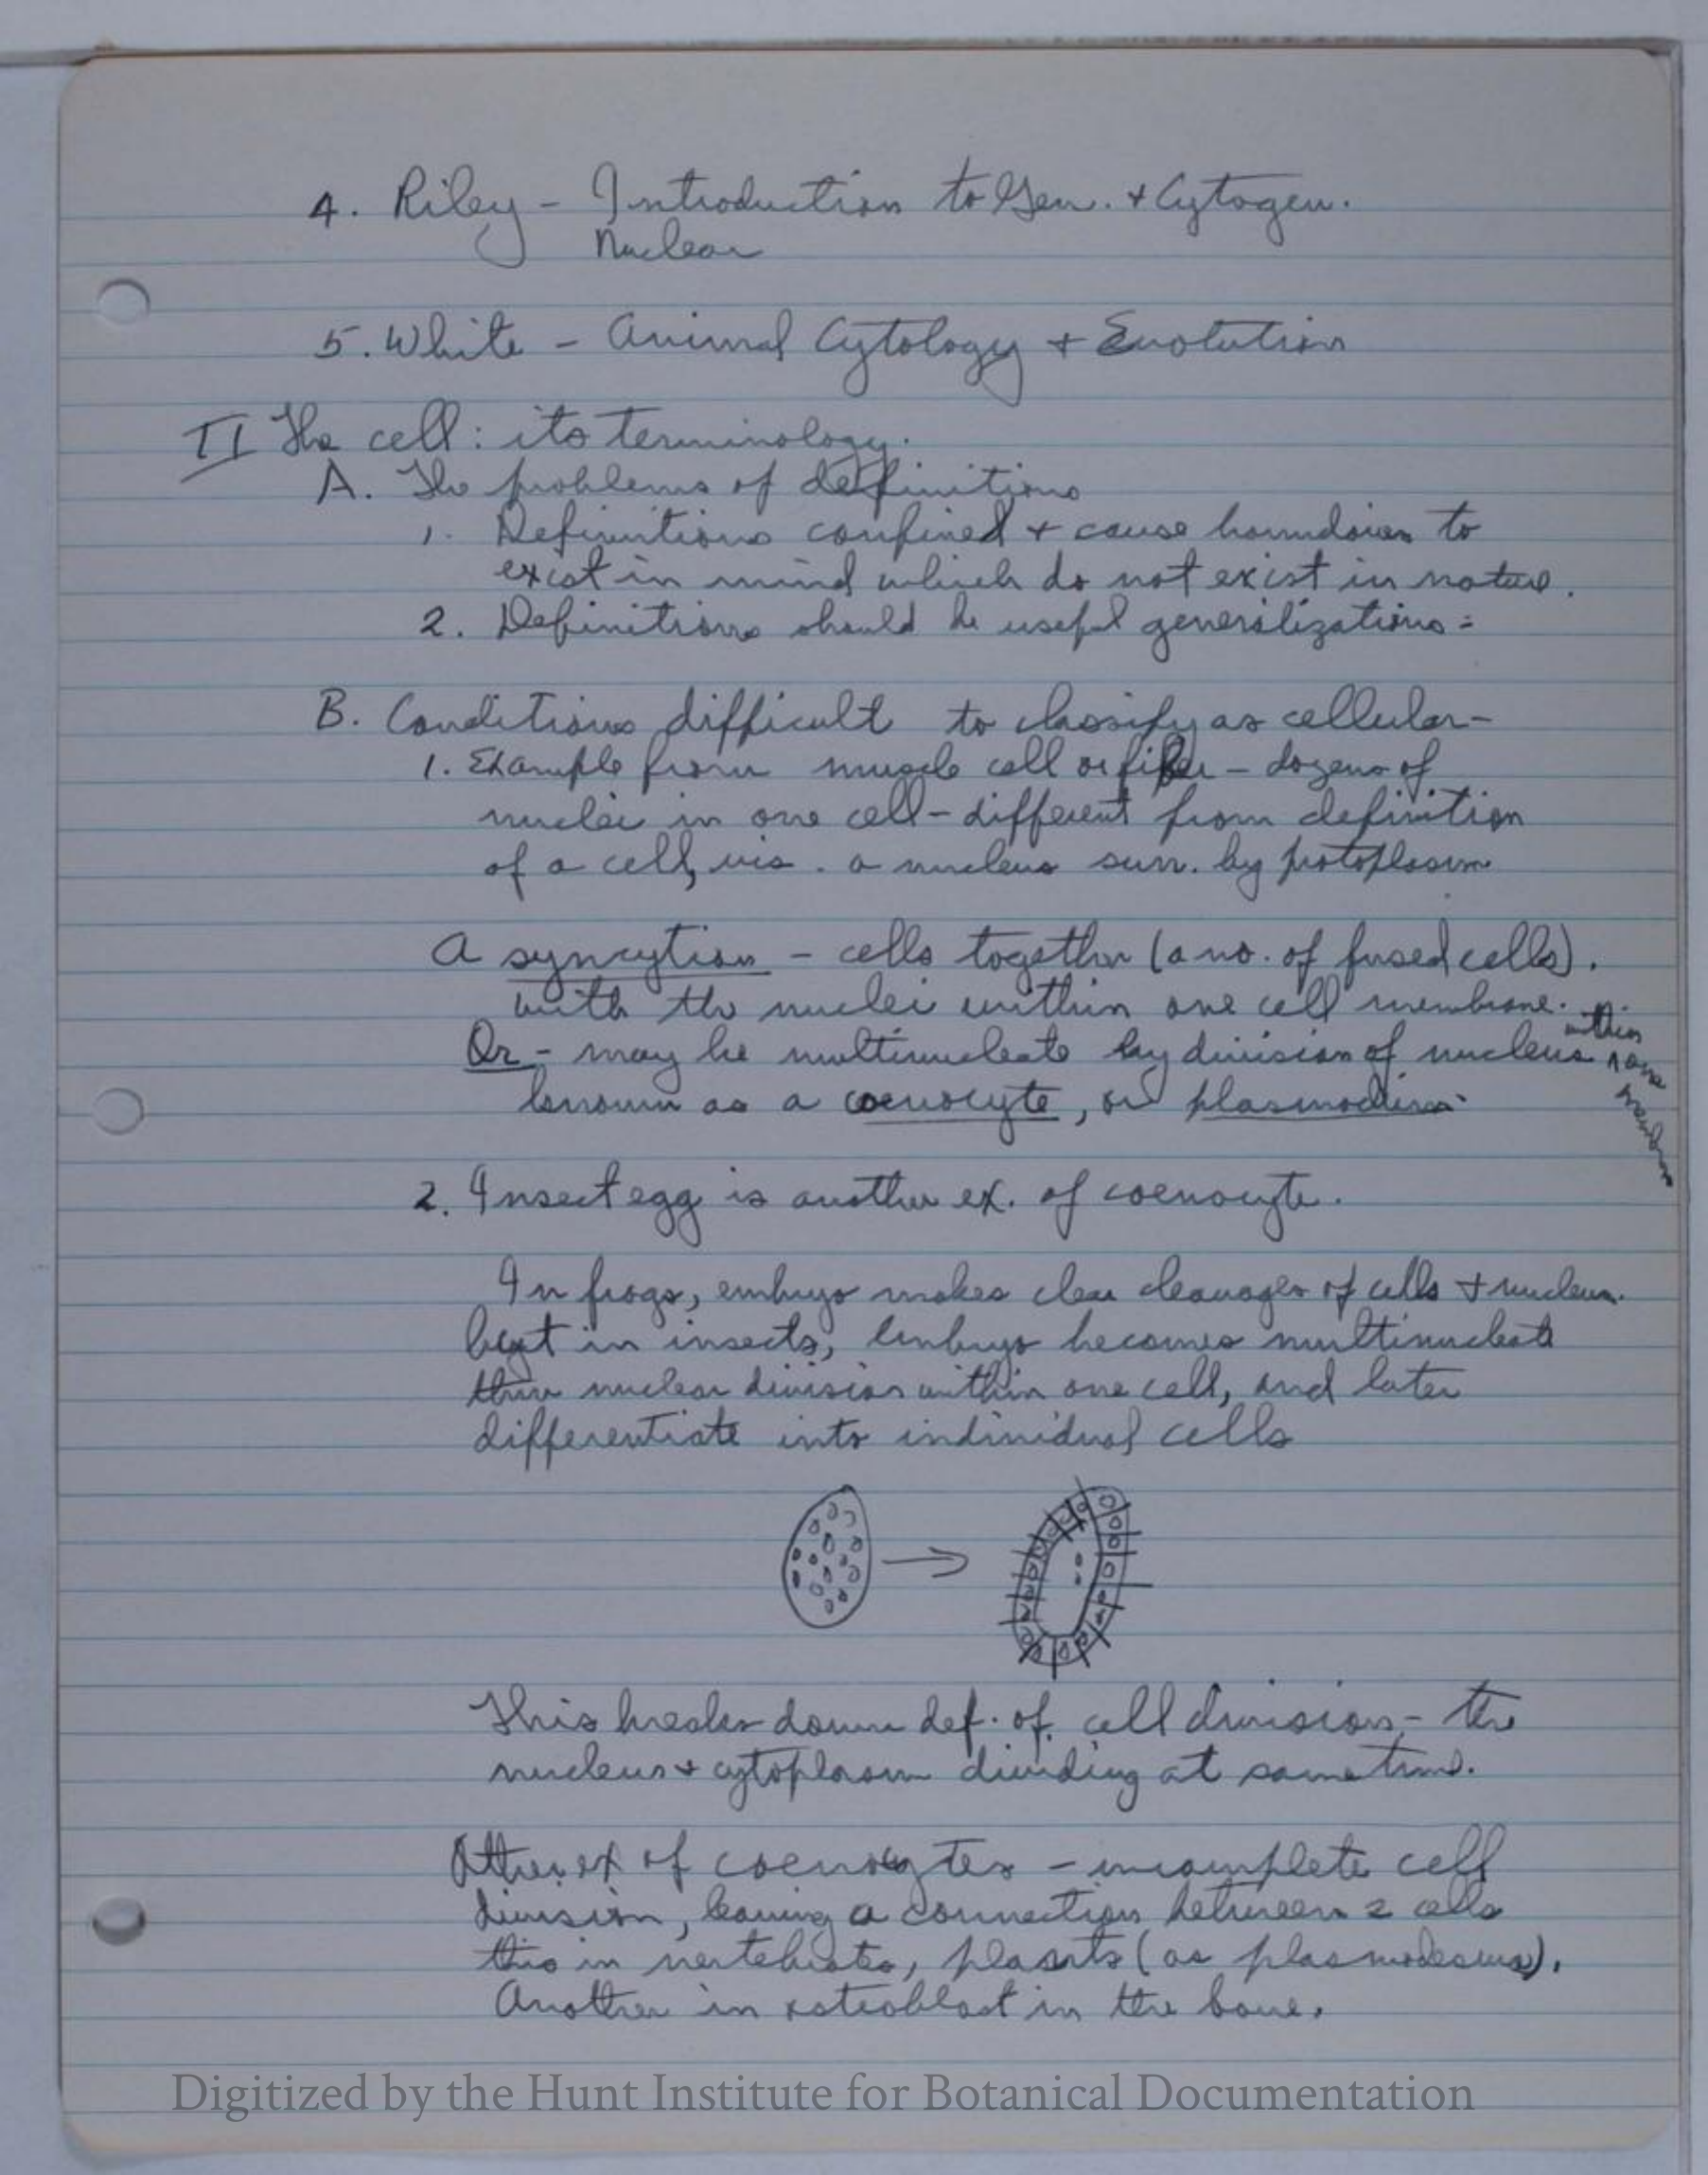 4. Riley - Introduction to Gen. + Cytogen.
Nuclear
5. White - Animal Cytology + Evolution
II The cell: its terminology.
A. The problems of definitions
1. Definitions confined + cause boundaries to
exist in mind which do not exist in nature.
2. Definitions should be useful generalizations -
B. Conditions difficult to classify as cellular -
1. Example from muscle cell or fiber - dozens of
nuclei in one cell - different from definition
of a cell, vis. a nucleus surr. by protoplasm
A syncytium - cells together (a no. of fused cells).
with the nuclei within one cell membrane.
Or - may be multinucleate by division of nucleus within one membrane
known as a coenocyte, or plasmodium
2. Insect egg is another ex. of coenocyte.
In frogs, embryo makes clear cleavages of cells + nucleus.
but in insects, embryo becomes multinucleate
thru nuclear division within one cell, and later
differentiate into individual cells
This breaks down def. of cell division - the
nucleus + cytoplasm dividing at same time.
Other ex of coenocytes - incomplete cell
division, leaving a connection between 2 cells
this in vertebrates, plants (as plasmodesma).
Another in osteoblast in the bone.
Digitized by the Hunt Institute for Botanical Documentation